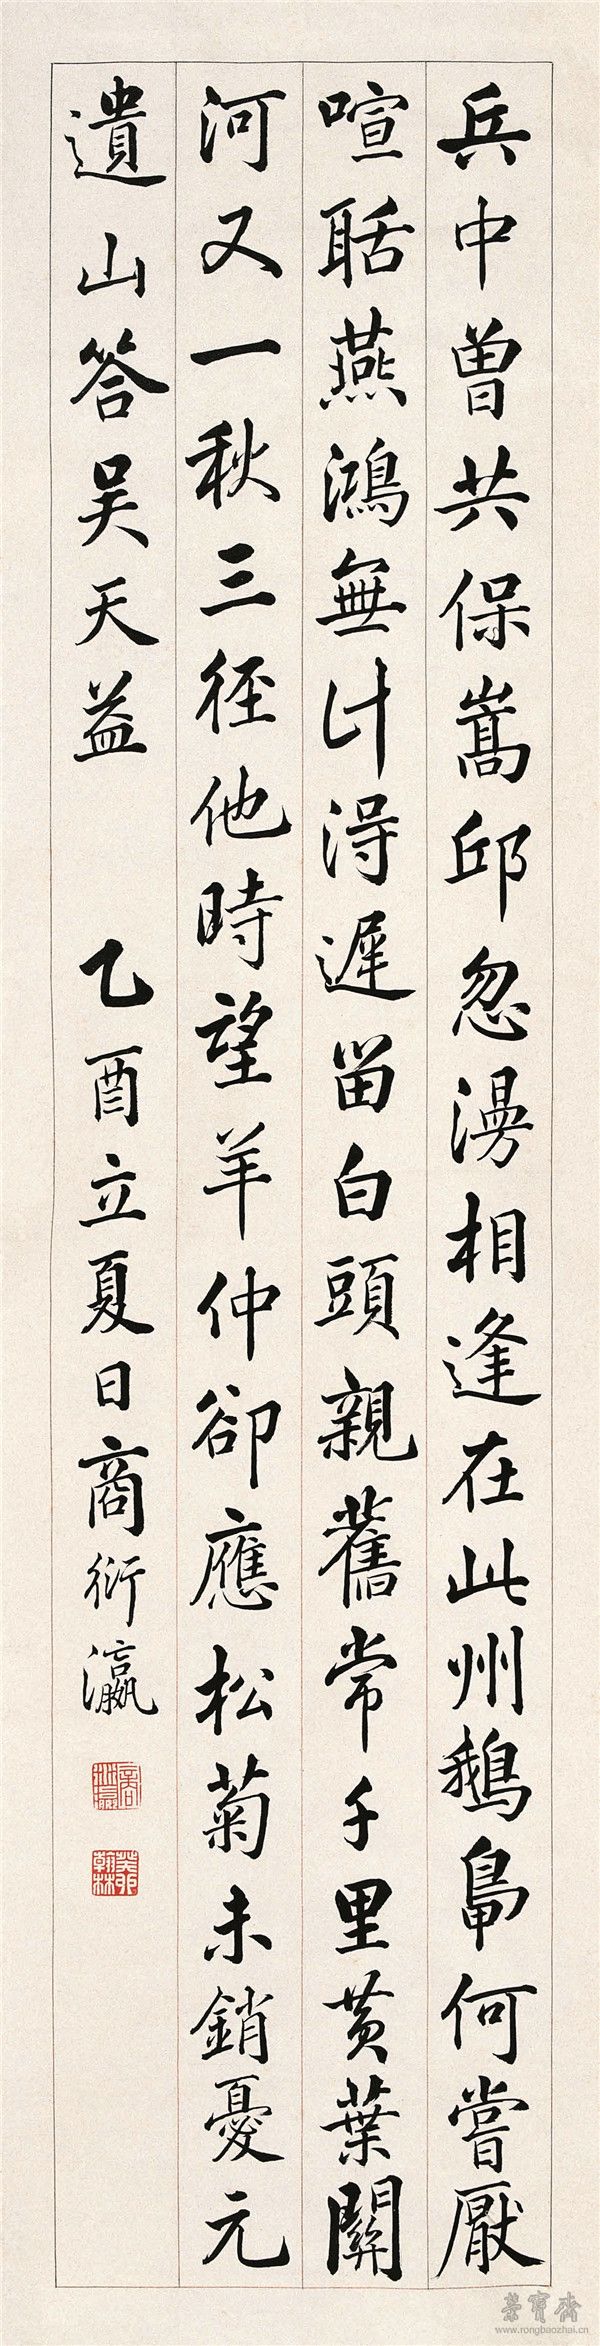 兵中曾共保嵩邱忽漫相逢在此州鵝鳧何嘗厭
喧聒燕鴻無計得遲留白頭親舊常千里黄葉關
河又一秋三徑他時望羊仲卻應松菊未銷憂元
遺山答吴天益 乙酉立夏日商衍瀛
商衍瀛
癸卯翰林
榮寶齋
www.rongbaozhai.cn